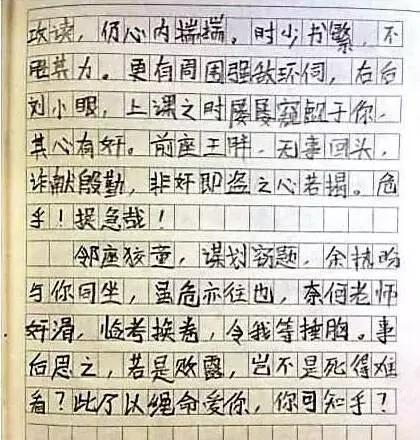 攻读，仍心内揣揣。时少书繁，不
胜其力。更有周围强敌环伺，右后
刘小眼，上课之时屡屡窥觎于你，
其心有奸。前座王胖，无事回头，
诈献殷勤，非奸即盗之心若揭。危
乎！捉急哉！
邻座狡童，谋划窃题，余执昐
与你同坐，虽危亦往也，奈何老师
奸滑，临考换卷，令我等捶胸。事
后思之，若是败露，岂不是死得难
看？此乃以绳命爱你，你可知乎？